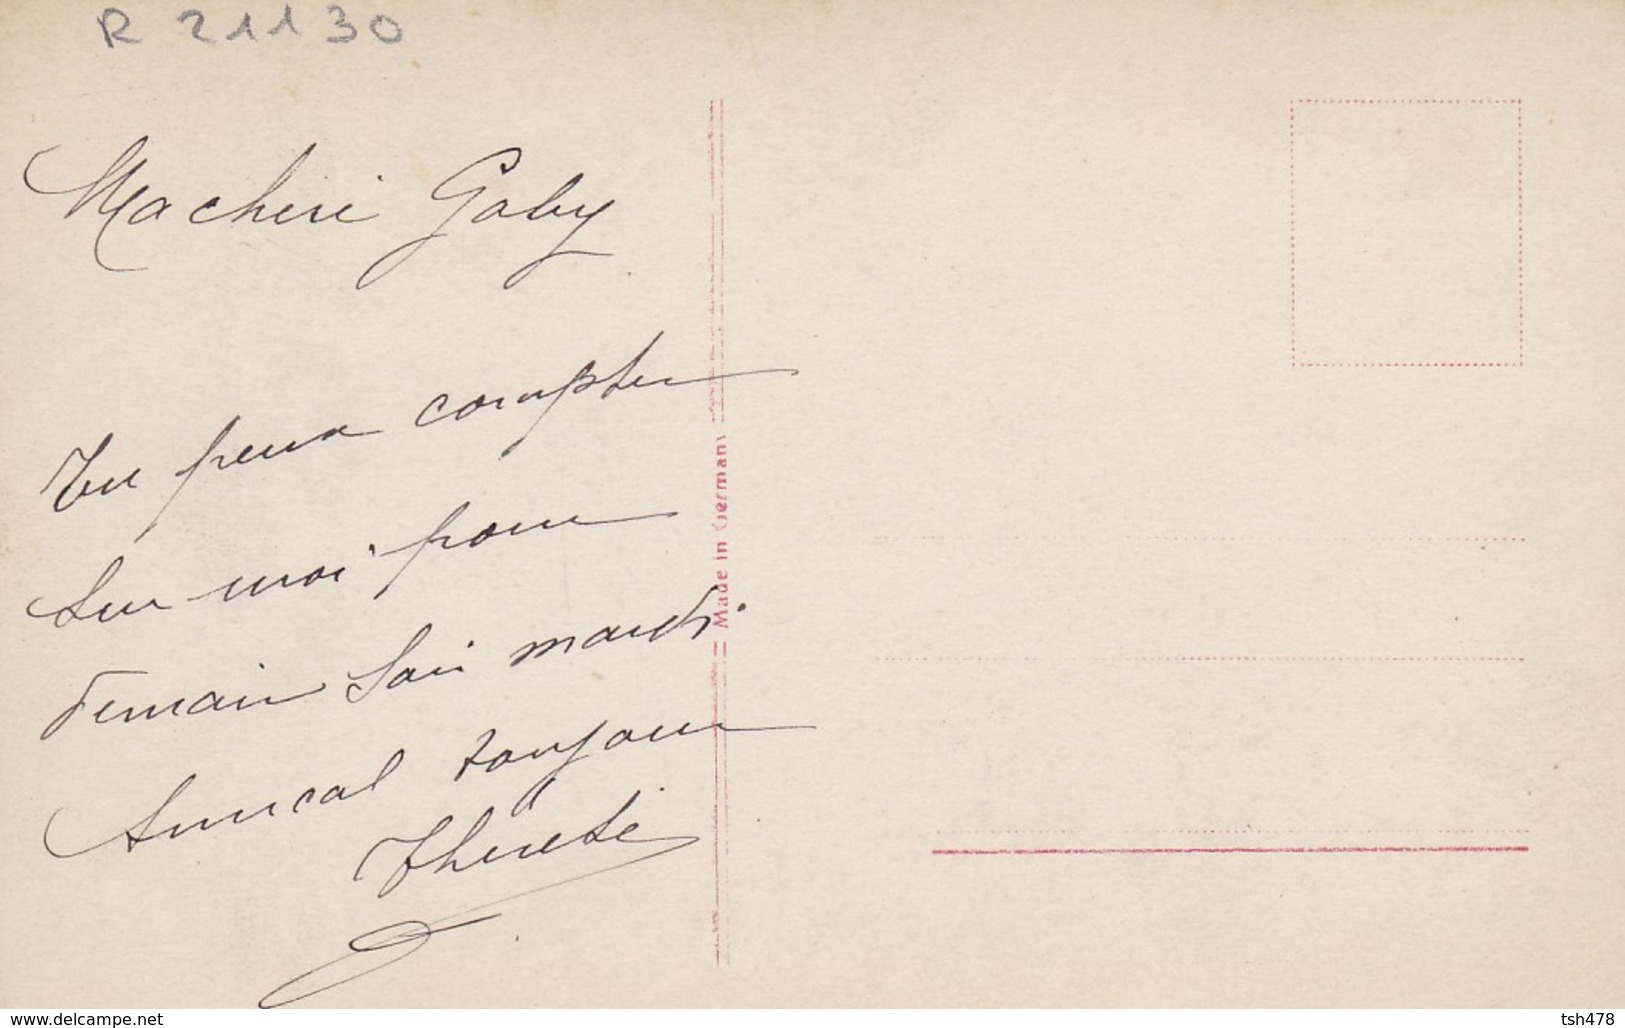 R 21130
Ma cheri Gaby
Tu peux compter
sur moi pour
demain soir mardi
Amical toujour
Therese
Made in Germany
www.delcampe.net
tsh478